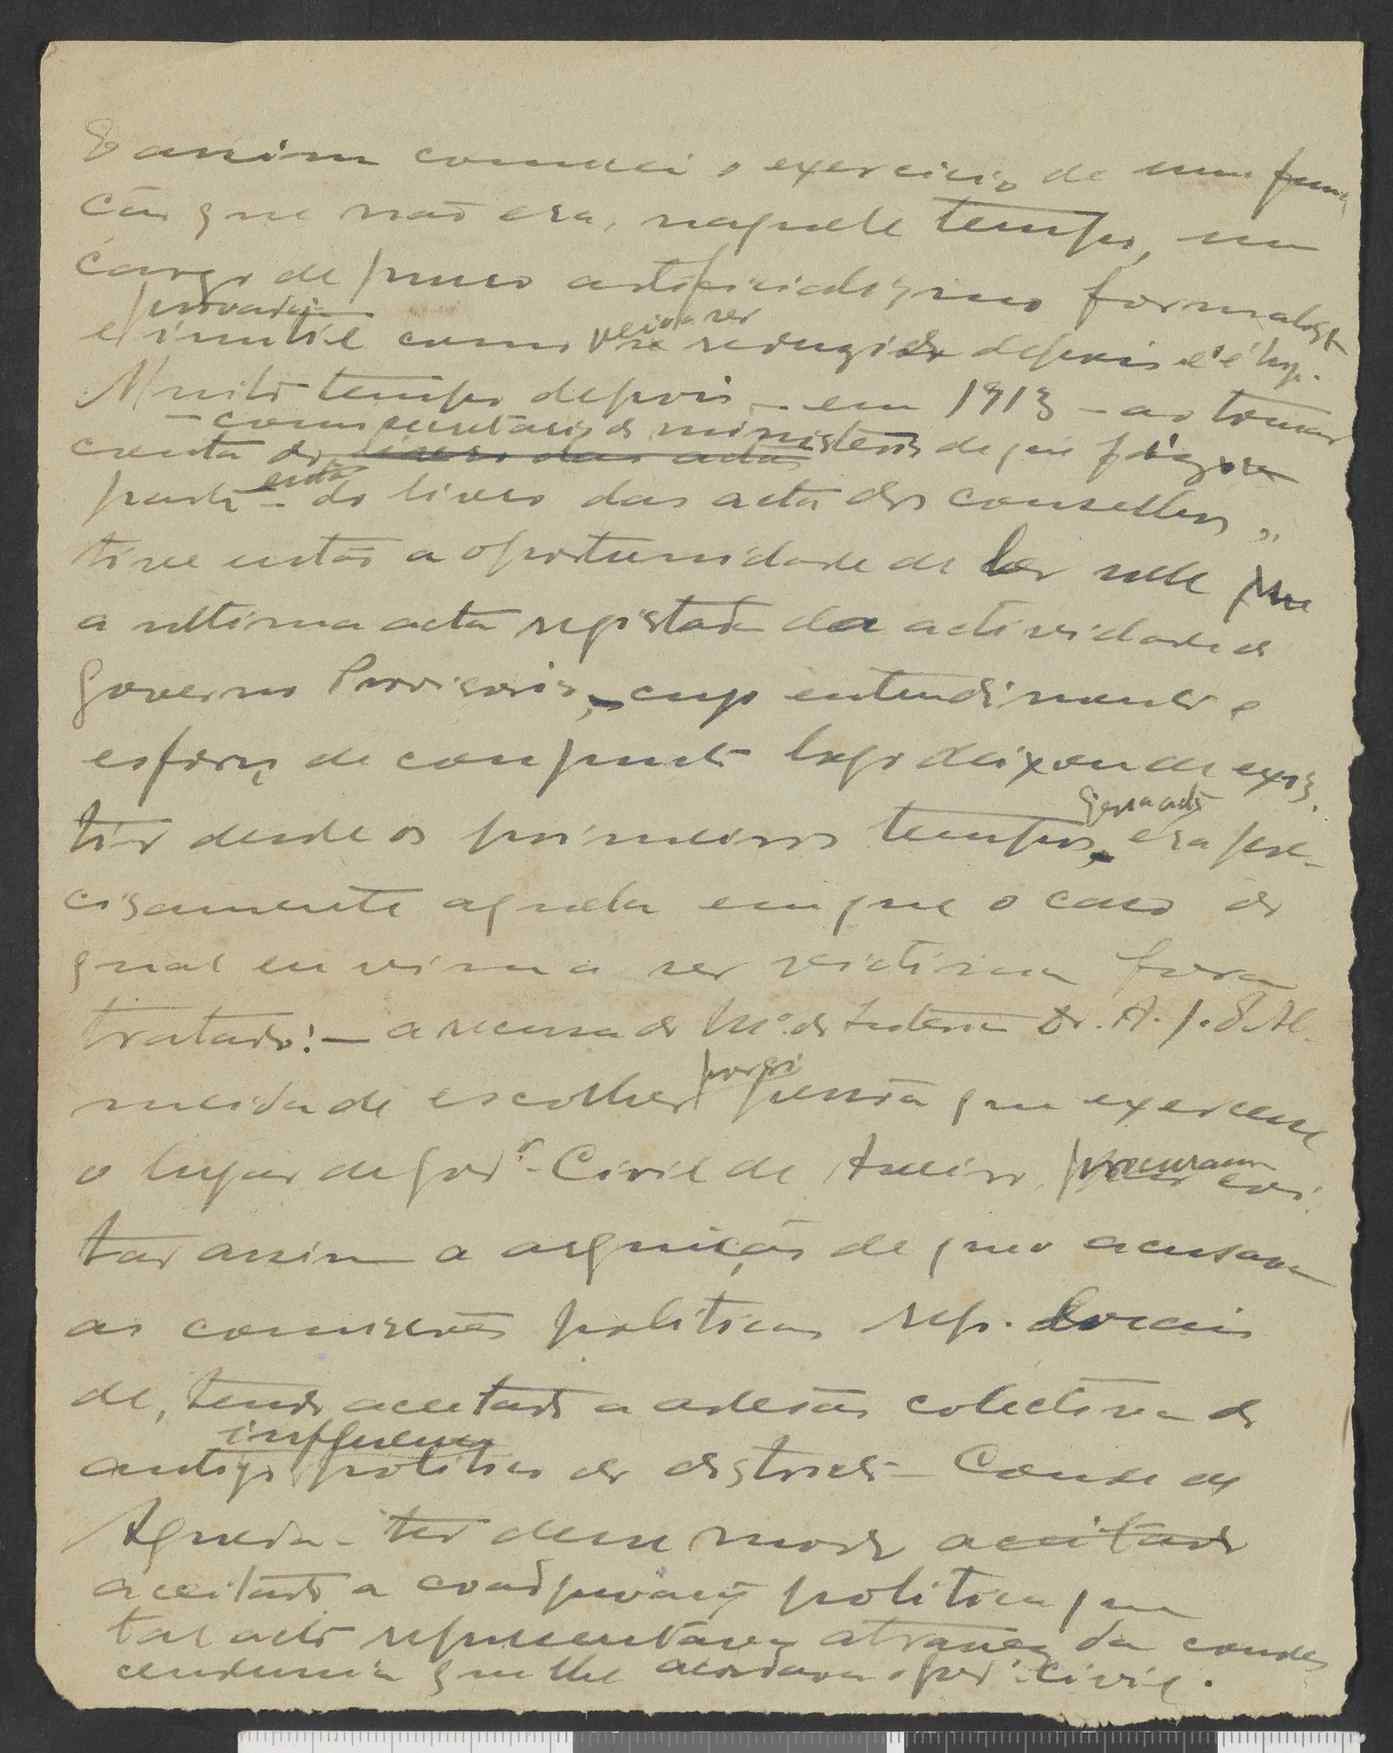 E assim comecei o exercicio de uma fun-
ção que não era, naquele tempo, um
cargo de puro artificialismo formalista
provadam.
e inutil como veio a ser reduzido depois e é hoje.
Muito tempo depois – em 1913 – ao tomar
– como secretário do ministerio de que fiz
conta do livro das actas
parte – então do livro das actas dos conselhos,
tive então a oportunidade de ler nele que
a ultima acta registada da actividade do
Governo Provisorio, cujo entendimento e
esforço de conjunto logo deixou de exis-
tir desde os primeiros tempos, era pre-
cisamente aquela em que o caso do
qual eu vim a ser victima fora
tratado: – a recusa do Mº. do Interior Dr. A. J. d'Al-
meida de escolher por si pessoa que exercesse
o lugar de govr. Civil de Aveiro, procurando evi-
tar assim a arguição de que o acusavam
as comissões politicas rep. locais
de, tendo aceitado a adesão colectiva do
antigo influente politico do distrito – Conde de
Agueda – ter desse modo aceitado
aceitado a coadjuvação politica que
tal acto representava atravez da condes-
cendencia que lhe acordava o govr. civil.